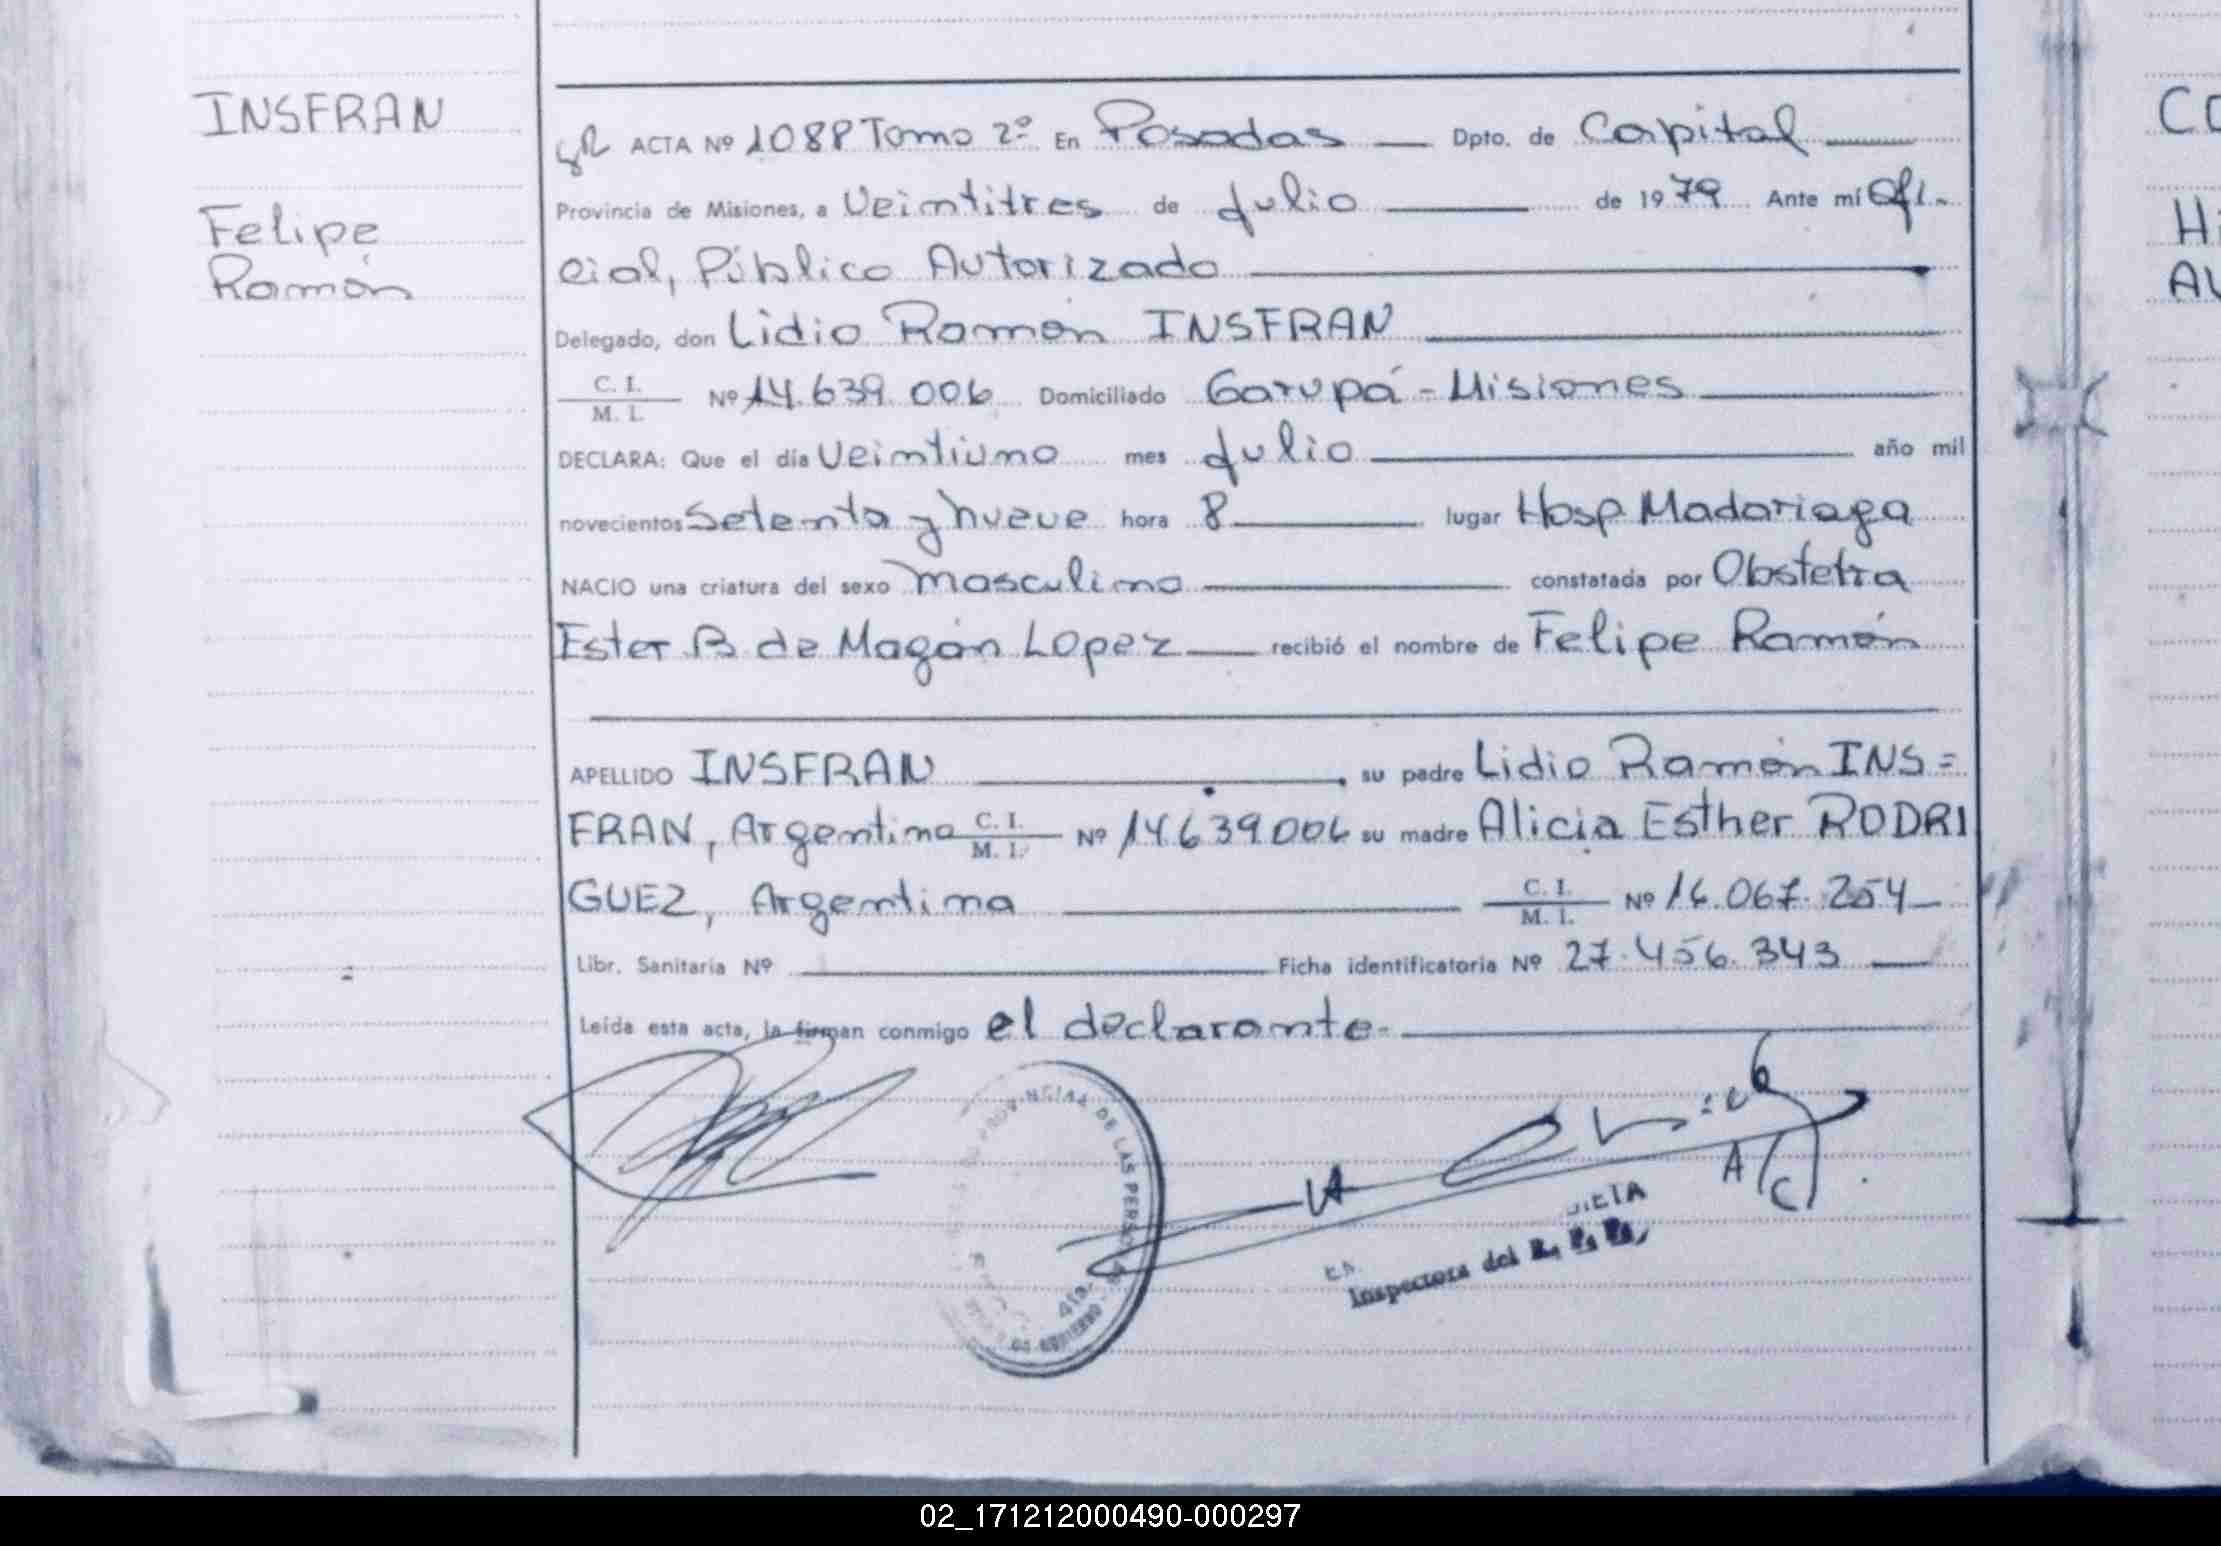 INSFRAN
Felipe
Ramón
ACTA Nº 1088 Tomo 2º En Posadas Dpto. de Capital
Provincia de Misiones, a Veintitres de Julio de 1979 Ante mí Ofi-
cial, Público Autorizado
Delegado, don Lidio Ramón INSFRAN
C. I.
M. I. Nº 14.639.006 Domiciliado Garupá - Misiones
DECLARA: Que el día Veintiuno mes Julio año mil
novecientos Setenta y nueve hora 8 lugar Hosp Madariaga
NACIO una criatura del sexo masculino constatada por Obstetra
Ester B de Magán Lopez recibió el nombre de Felipe Ramón
APELLIDO INSFRAN, su padre Lidio Ramón INS=
FRAN, Argentino C. I. M. I. Nº 14.639.006 su madre Alicia Esther RODRI
GUEZ, Argentina C. I. M. I. Nº 16.067.254
Libr. Sanitaria Nº Ficha identificatoria Nº 27.456.343
Leída esta acta, la firman conmigo el declarante.
PROVINCIAL DE LAS PERSONAS
A/C
Inspectora del R. P. P.
CO
AU
02_171212000490-000297